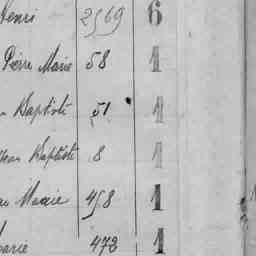 Henri 2569 6
Pierre Marie 58 1
Baptiste 51 1
Jean Baptiste 8 1
Marie 458 1
Marie 472 1